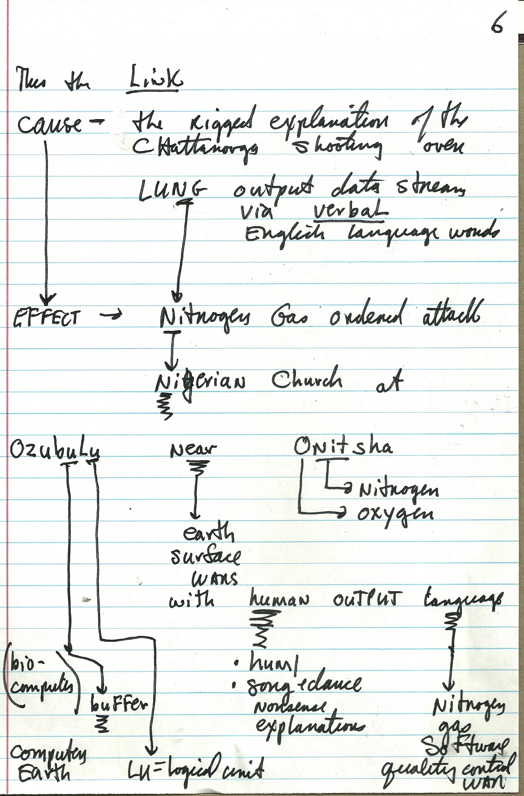 6
Thus the Link
CAUSE - the rigged explanation of the
CHattanooga shooting over
LUNG output data stream
via verbal
English language words
EFFECT → Nitrogen Gas ordered attack
Nigerian Church at
OzubuLu near ONitsha
Nitrogen
oxygen
earth
surface
WARS
with human OUTPUT language
(bio-
computer)
• hum/
• song+dance
nonsense
explanations
buffer
Nitrogen
gas
Software
quality control
WAR
Computer
Earth
LU=Logical unit